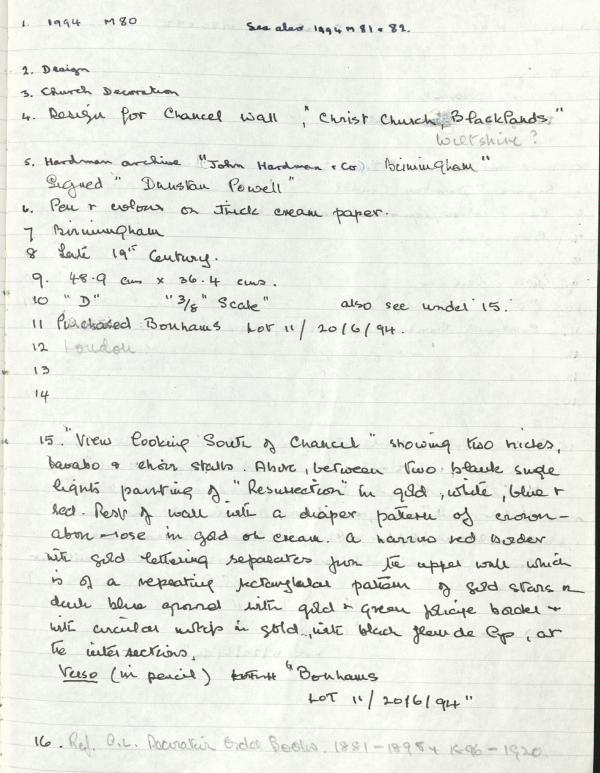 1. 1994 M80 See also 1994 M 81 + 82.
2. Design
3. Church Decoration
4. Design for Chancel Wall, "Christ Church, Blacklands."
Wiltshire ?
5. Hardman archive "John Hardman + Co Birmingham"
Signed "Dunstan Powell"
6. Pen + colour on thick cream paper.
7 Birmingham
8 Late 19th Century.
9. 48.9 cms x 36.4 cms.
10 "D" "3/8" Scale" also see under 15.
11 Purchased Bonhams Lot 11/ 20/6/94.
12 London
13
14
15. "View looking South of Chancel" showing two niches,
+ choir stalls. Above, between two blank single
lights painting of "Resurrection" in gold, white, blue +
red. Rest of wall with a diaper pattern of crown-
above-rose in gold on cream. A narrow red border
with gold lettering separates from the upper wall which
is of a repeating rectangular pattern of gold stars on
dark blue ground with gold + green border +
with circular motifs in gold, with black fleur de lys, at
the intersections.
Verso (in pencil) "Bonhams
LOT 11/ 20/6/94"
16. Ref. Decoration Order Books. 1881-1895 + 1896-1920.